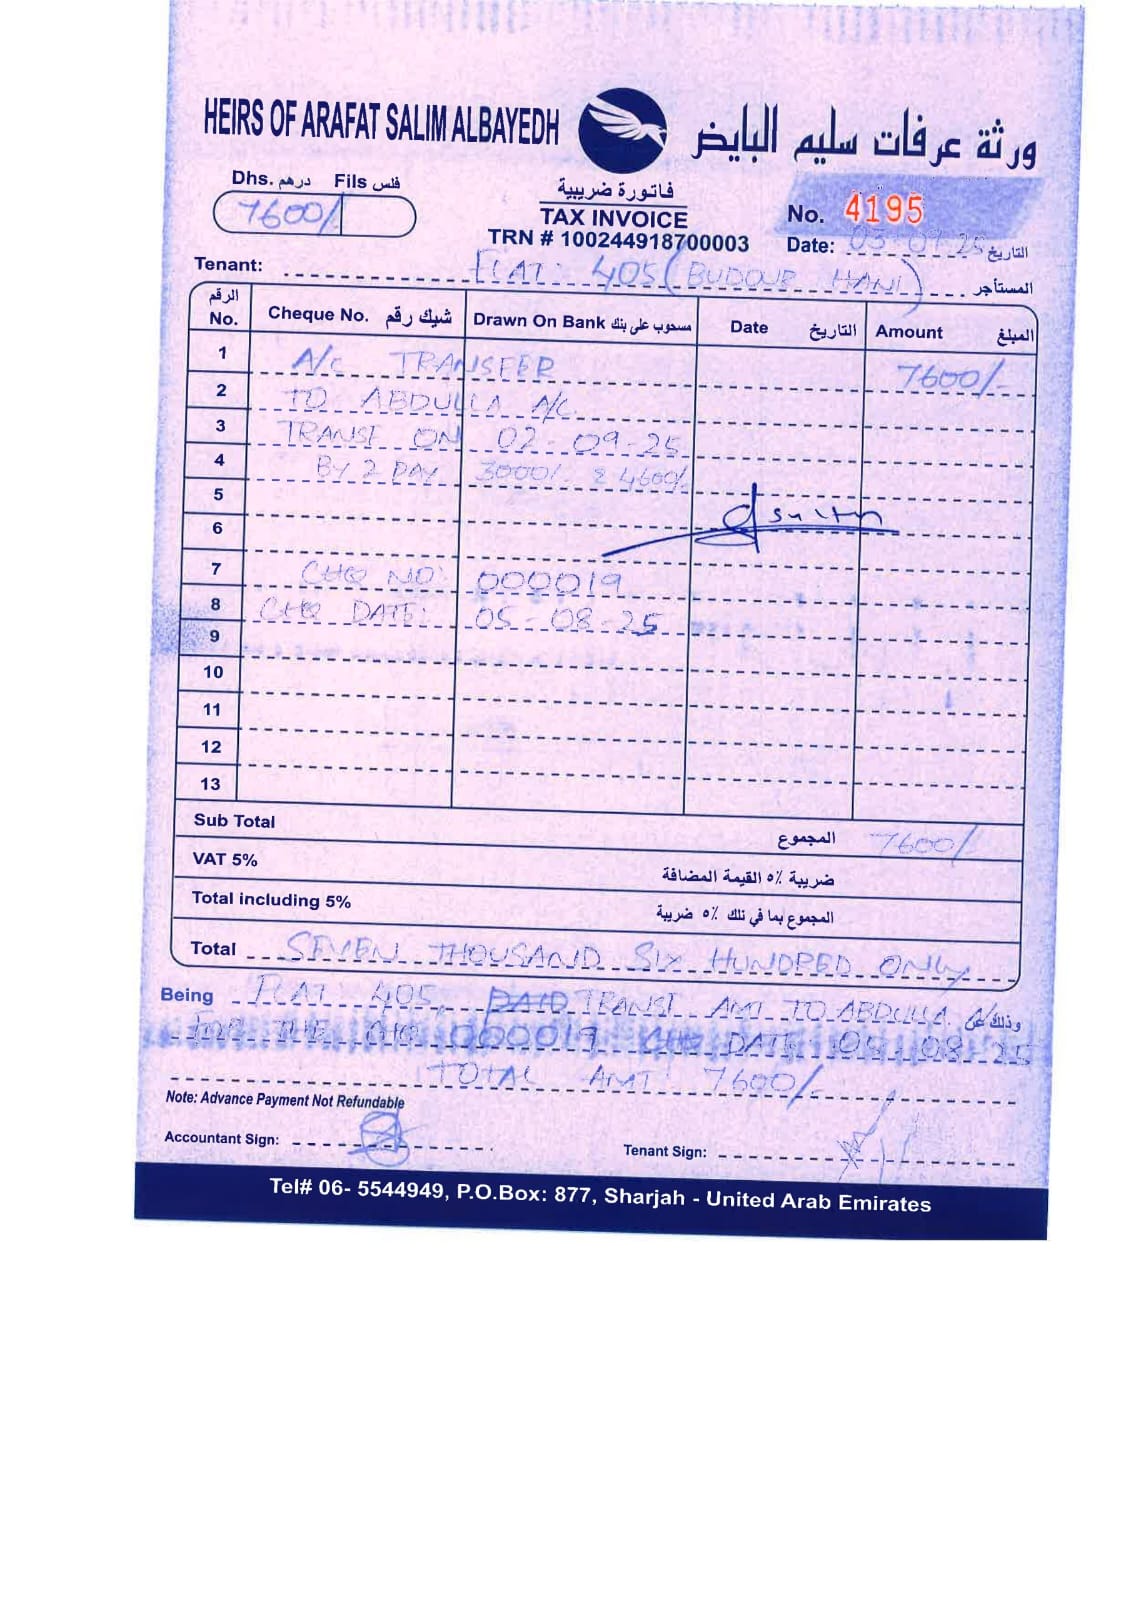 HEIRS OF ARAFAT SALIM ALBAYEDH ورثة عرفات سليم البايض
Dhs. درهم Fils فلس
7600/-
فاتورة ضريبية
TAX INVOICE
TRN # 100244918700003
No. 4195
Date: 03-09-25 التاريخ
Tenant: FLAT: 405 (BUDOUR HANI) المستأجر
الرقم No. Cheque No. شيك رقم Drawn On Bank مسحوب على بنك Date التاريخ Amount المبلغ
1 A/c TRANSFER 7600/-
2 TO ABDULLA A/C
3 TRANSF ON 02-09-25
4 BY 2 PAY 3000/- & 4600/-
5
6
7 CHQ NO: 000019
8 CHQ DATE: 05-08-25
9
10
11
12
13
Sub Total المجموع 7600/-
VAT 5% ضريبة ٥٪ القيمة المضافة
Total including 5% المجموع بما في ذلك ٥٪ ضريبة
Total SEVEN THOUSAND SIX HUNDRED ONLY
Being FLAT: 405, PAID TRANSF AMT TO ABDULLA A/c وذلك عن
FOR THE CHQ 000019 CHQ DATE: 05-08-25
TOTAL AMT: 7600/-
Note: Advance Payment Not Refundable
Accountant Sign:
Tenant Sign:
Tel# 06- 5544949, P.O.Box: 877, Sharjah - United Arab Emirates